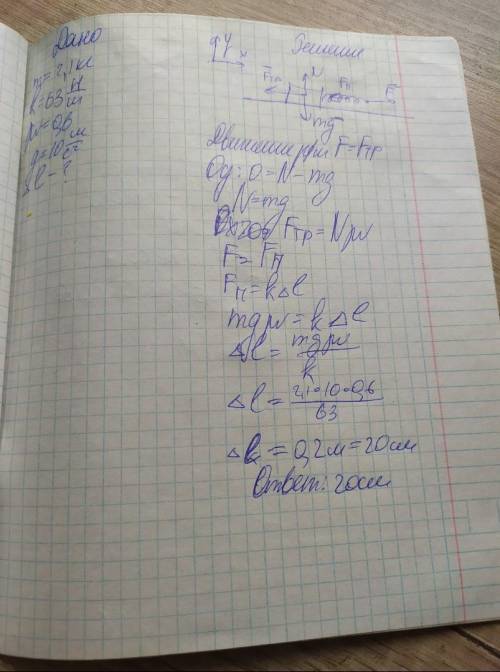 Дано
m = 2,1 кг
k = 63 Н/м
μ = 0,6
g = 10 м/с²
Δl - ?
Решение
Y
X
Fтр N Fп F
mg
Движение при F = Fтр
Oy: 0 = N - mg
N = mg
Fтр = Nμ
F = Fп
Fп = kΔl
mgμ = kΔl
Δl = mgμ/k
Δl = 2,1·10·0,6/63
Δl = 0,2м = 20см
Ответ: 20см